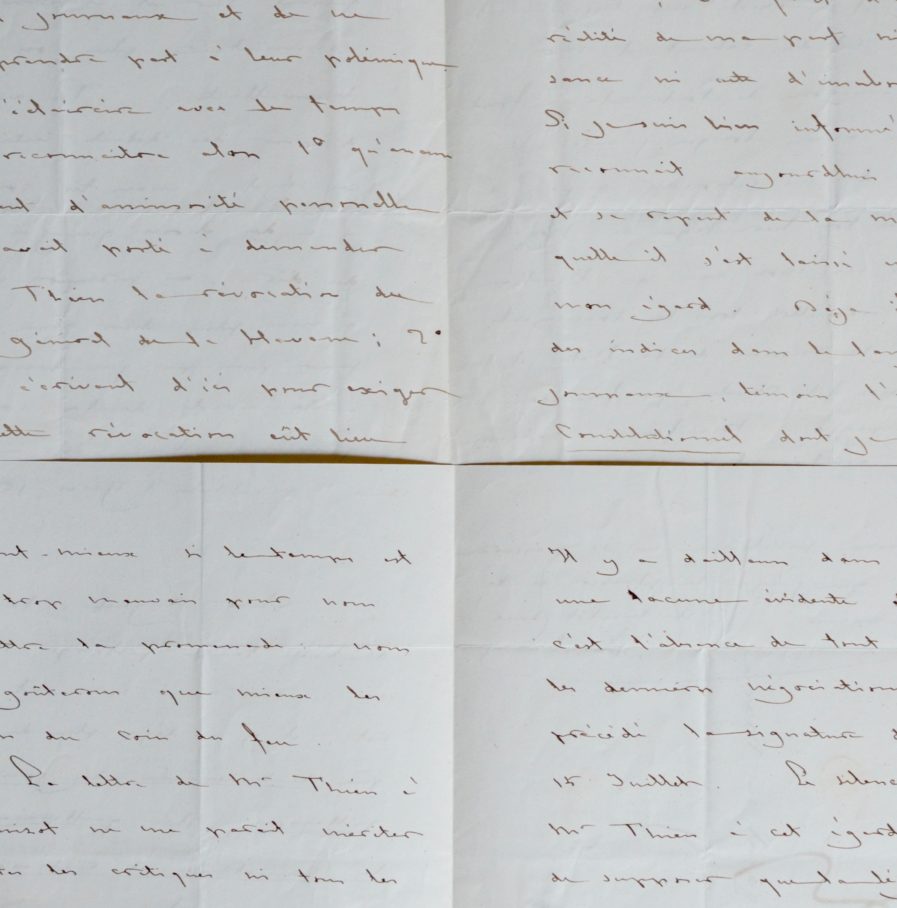 journaux et de ne
prendre part à leur polémique
s'éclaircira avec le temps
reconnaitra alors 1º qu'aucun
d'animosité personnelle
avait porté à demander
Thiers la révocation du
général de la Havane ; 2º
écrivant d'ici pour exiger
cette révocation eût lieu
rédité de ma part ni
sance ni acte d'insubor
Si je suis bien informé
reconnait aujourdhui
et se repent de la m
quelle il s'est laissé
mon égard. Déja
des indices dans le lan
journaux, témoin l'
Constitutionnel dont je
-mieux si le temps est
trop mauvais pour nous
la promenade. nous
goûterons que mieux les
du coin du feu.
La lettre de Mr Thiers à
ne me parait mériter
les critiques ni tous les
Il y a dailleurs dans
une lacune évidente
c'est l'absence de tout
les dernières négociations
précédé la signature d
15 Juillet. Le silence
Mr Thiers à cet égard
de supposer que